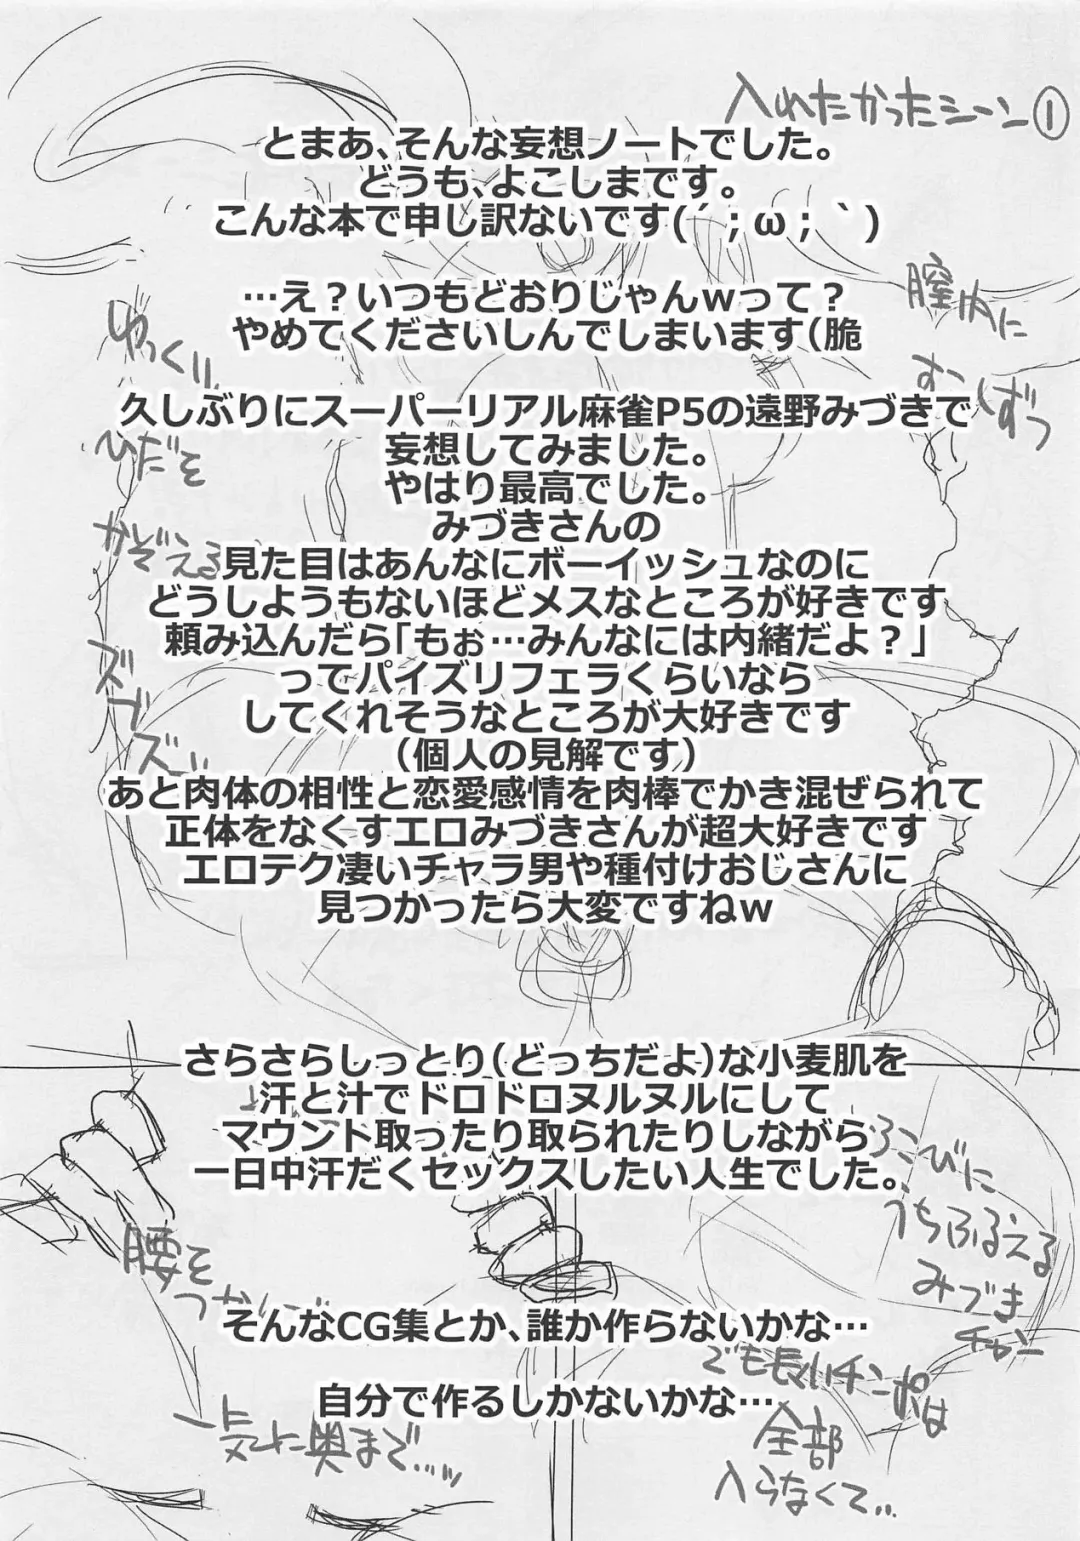 入れたかったシーン①
とまあ、そんな妄想ノートでした。
どうも、よこしまです。
こんな本で申し訳ないです(´；ω；｀)
…え？いつもどおりじゃんｗって？
やめてくださいしんでしまいます（脆
膣内に
すこしずつ
ゆっくりい
ひだを
かぞえる
ズズ
ズズ
久しぶりにスーパーリアル麻雀P5の遠野みづきで
妄想してみました。
やはり最高でした。
みづきさんの
見た目はあんなにボーイッシュなのに
どうしようもないほどメスなところが好きです
頼み込んだら「もぉ…みんなには内緒だよ？」
ってパイズリフェラくらいなら
してくれそうなところが大好きです
（個人の見解です）
あと肉体の相性と恋愛感情を肉棒でかき混ぜられて
正体をなくすエロみづきさんが超大好きです
エロテク凄いチャラ男や種付けおじさんに
見つかったら大変ですねｗ
さらさらしっとり（どっちだよ）な小麦肌を
汗と汁でドロドロヌルヌルにして
マウント取ったり取られたりしながら
一日中汗だくセックスしたい人生でした。
よろこびに
うちふるえる
みづき
チャン
腰を
そんなCG集とか、誰か作らないかな…
自分で作るしかないかな…
でも長いチンポは
全部
入らなくて‥
一気に奥まで…